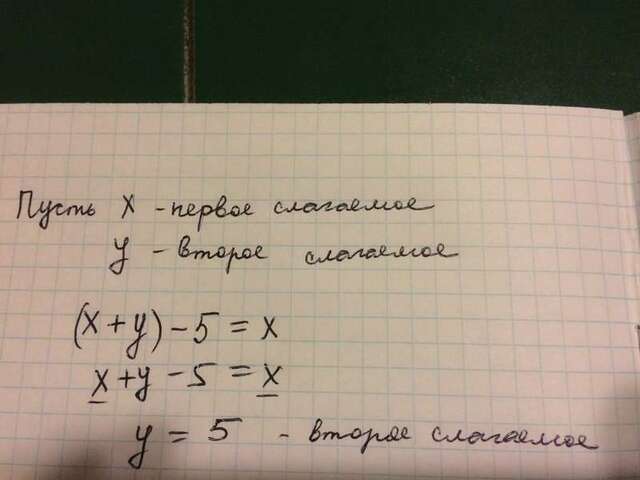 Пусть x - первое слагаемое
y - второе слагаемое
(x + y) - 5 = x
x + y - 5 = x
y = 5 - второе слагаемое